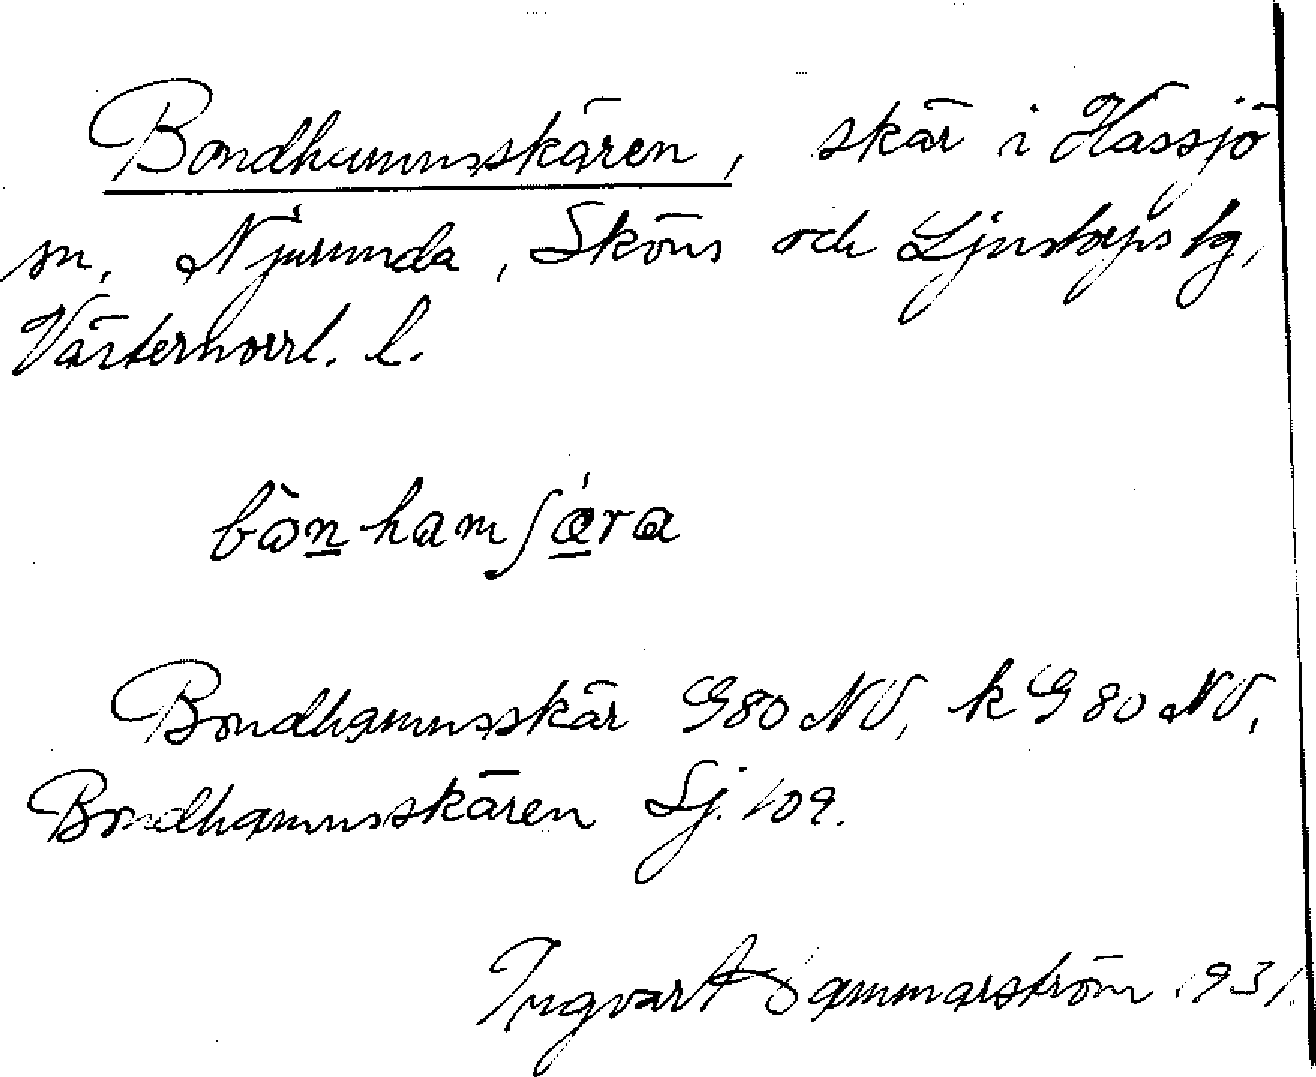 Bondhamnsskären, skär i Hässjö
sn, Njurunda, Sköns och Ljustorps tg,
Västernorrl. l.
bònhamʃǽra
Bondhamnsskär G80 NV, k G 80 NV,
Bondhamnsskären Lj. 109.
Ingvar Hammarström 1931.